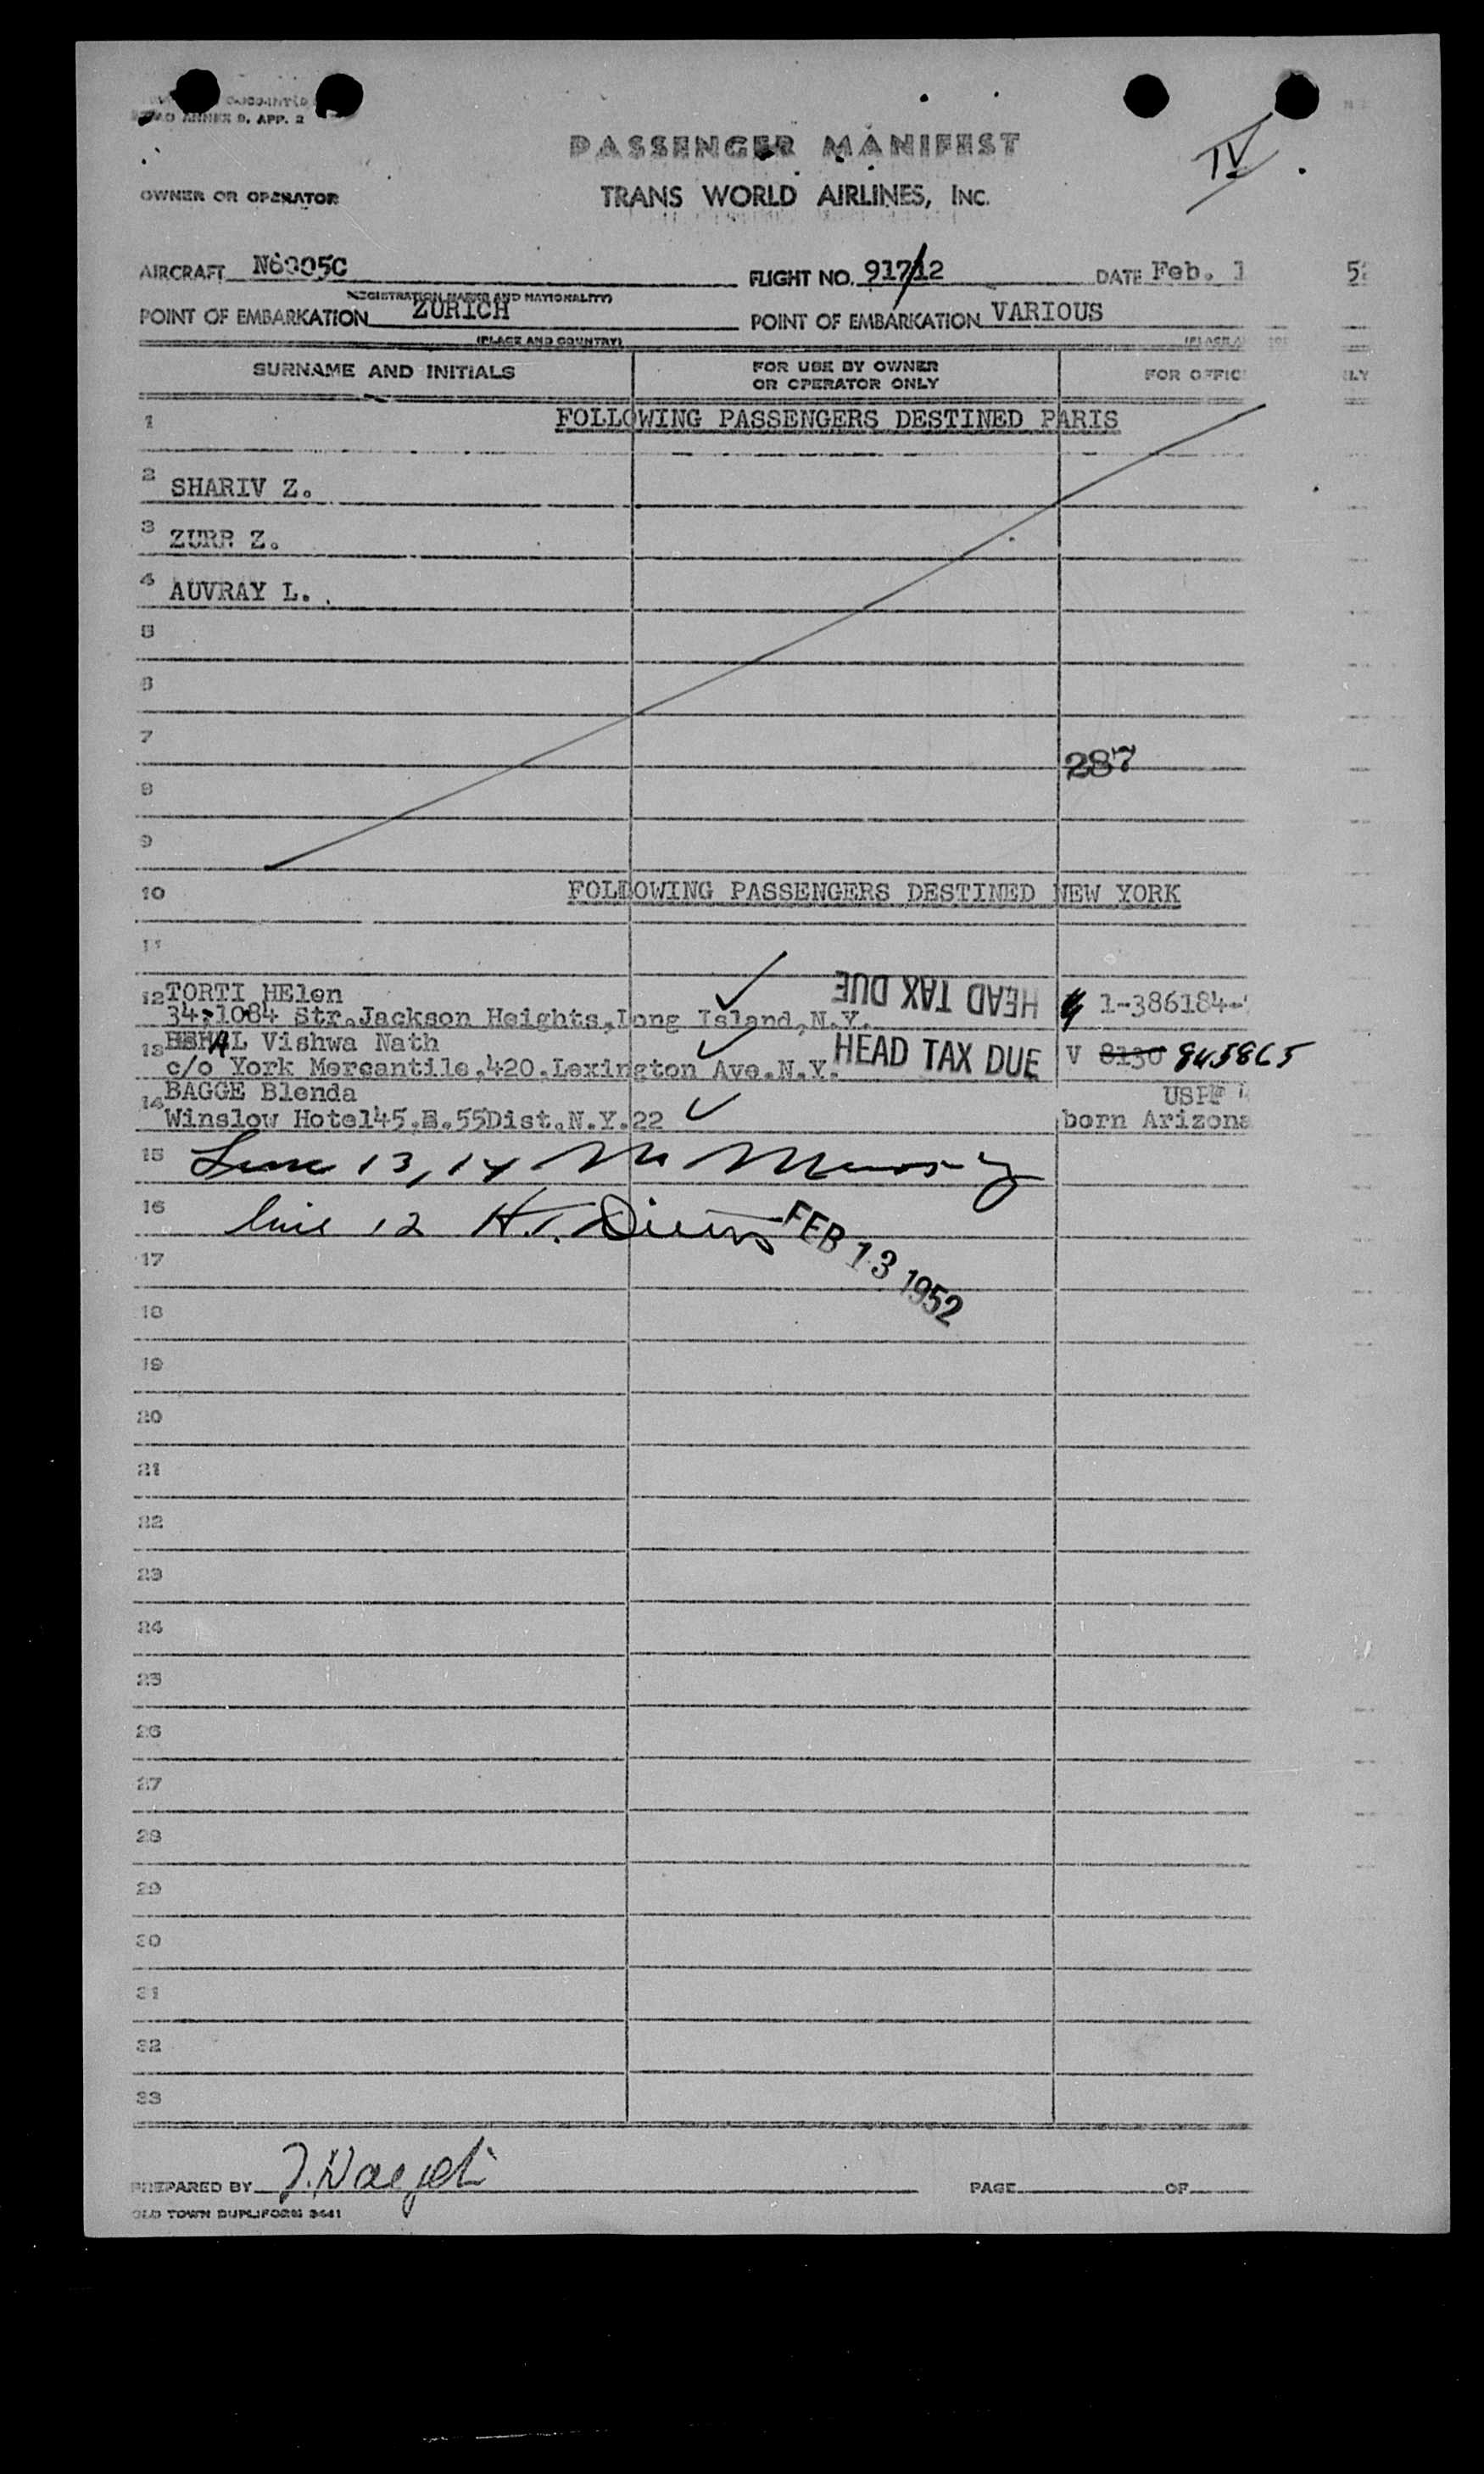 ANNEX 9, APP. 2
PASSENGER MANIFEST
IV
OWNER OR OPERATOR
TRANS WORLD AIRLINES, INC.
AIRCRAFT N6005C FLIGHT NO. 917/12 DATE Feb. 1 52
(REGISTRATION MARKS AND NATIONALITY)
POINT OF EMBARKATION ZURICH POINT OF EMBARKATION VARIOUS
(PLACE AND COUNTRY)
SURNAME AND INITIALS FOR USE BY OWNER OR OPERATOR ONLY FOR OFFIC LY
1 FOLLOWING PASSENGERS DESTINED PARIS
2 SHARIV Z.
3 ZURR Z.
4 AUVRAY L.
5
6
7
287
8
9
10 FOLLOWING PASSENGERS DESTINED NEW YORK
11
12 TORTI HElen HEAD TAX DUE 1-386184-
34-1084 Str.Jackson Heights,Long Island,N.Y.
13 Vishwa Nath HEAD TAX DUE V 8130 845865
c/o York Mercantile,420.Lexington Ave.N.Y.
14 BAGGE Blenda
Winslow Hotel45.E.55Dist.N.Y.22 born Arizona
15 Line 13, 14
16 line 12 H.T.
FEB 13 1952
17
18
19
20
21
22
23
24
25
26
27
28
29
30
31
32
33
PREPARED BY PAGE OF
OLD TOWN DUPLIFORM 3641